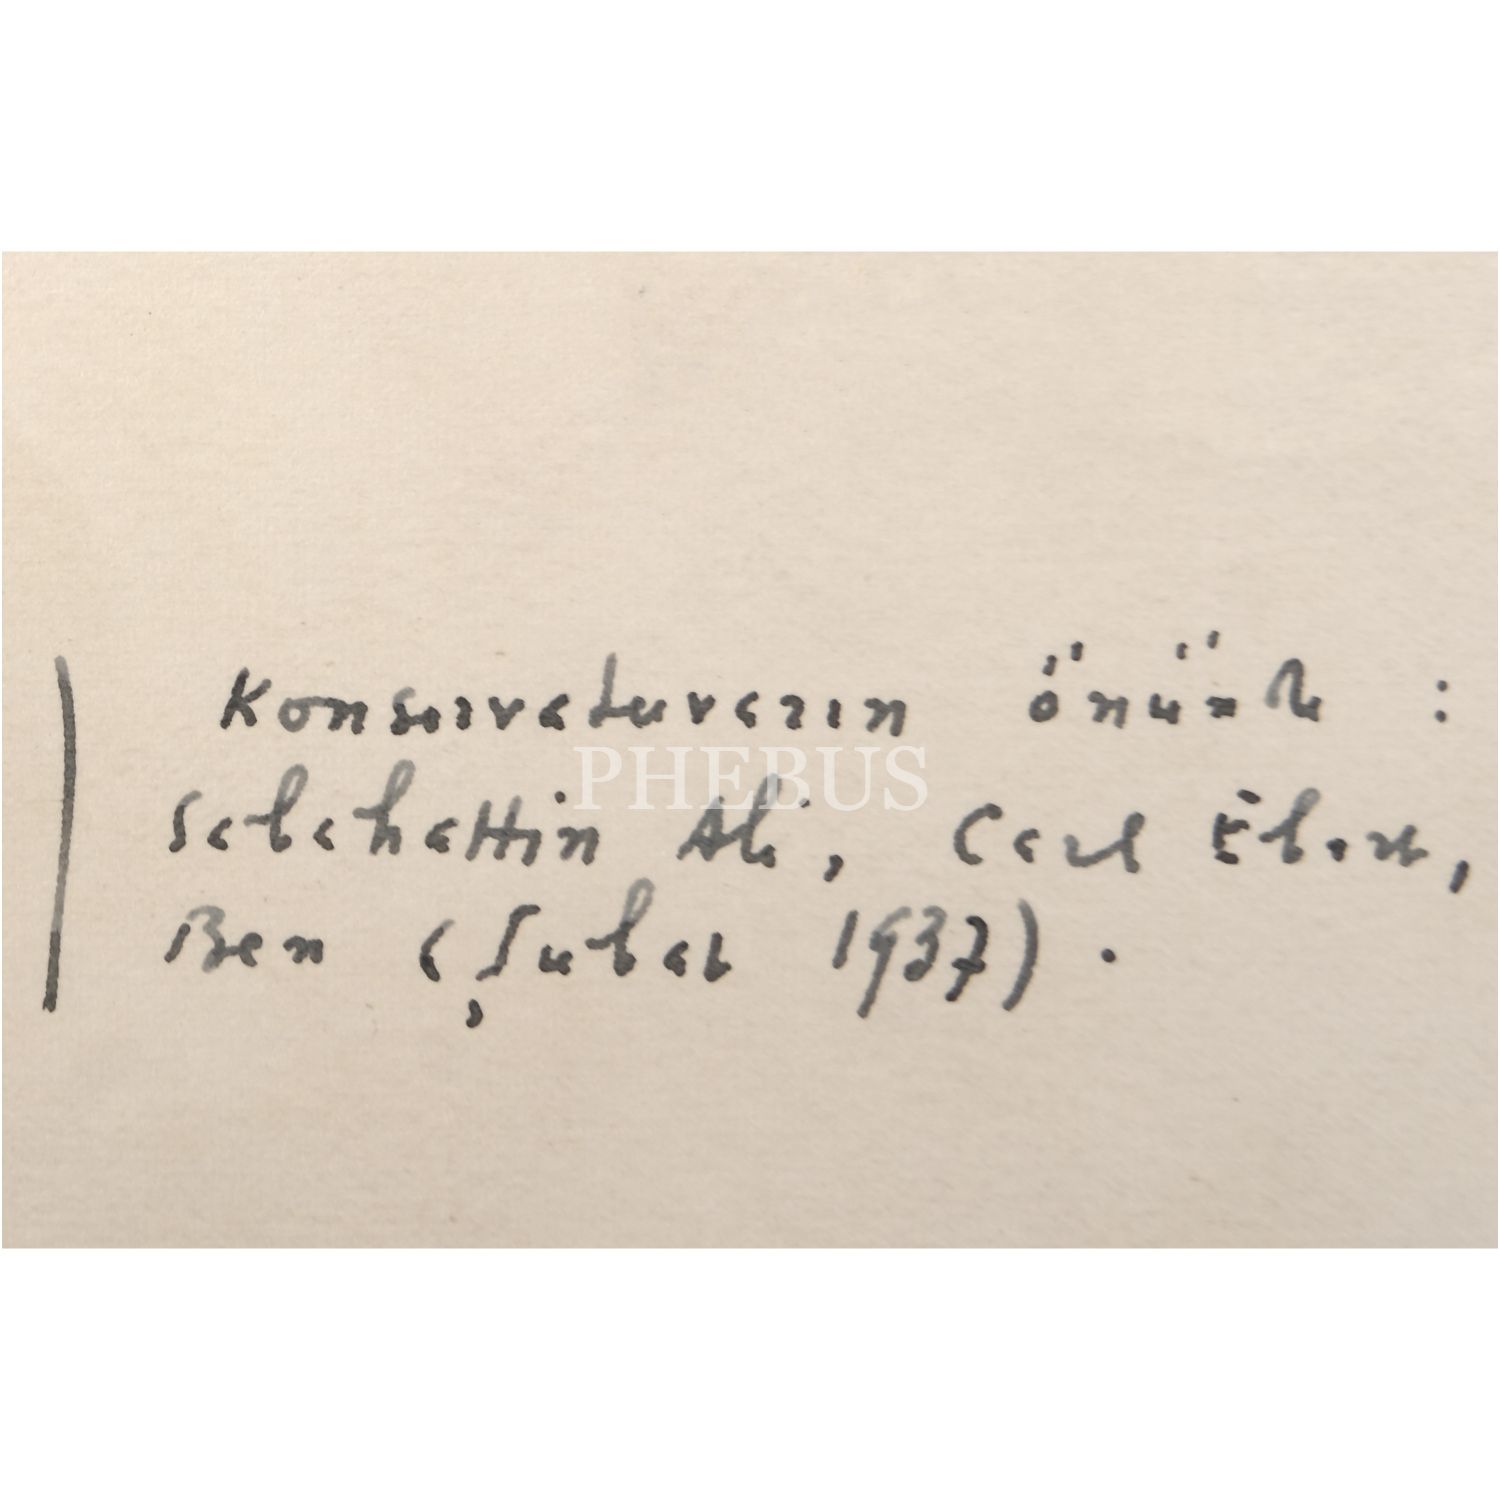 Konservatuvarın önünde :
PHEBUS
Sabahattin Ali, Carl Ebert,
Ben (Şubat 1937).